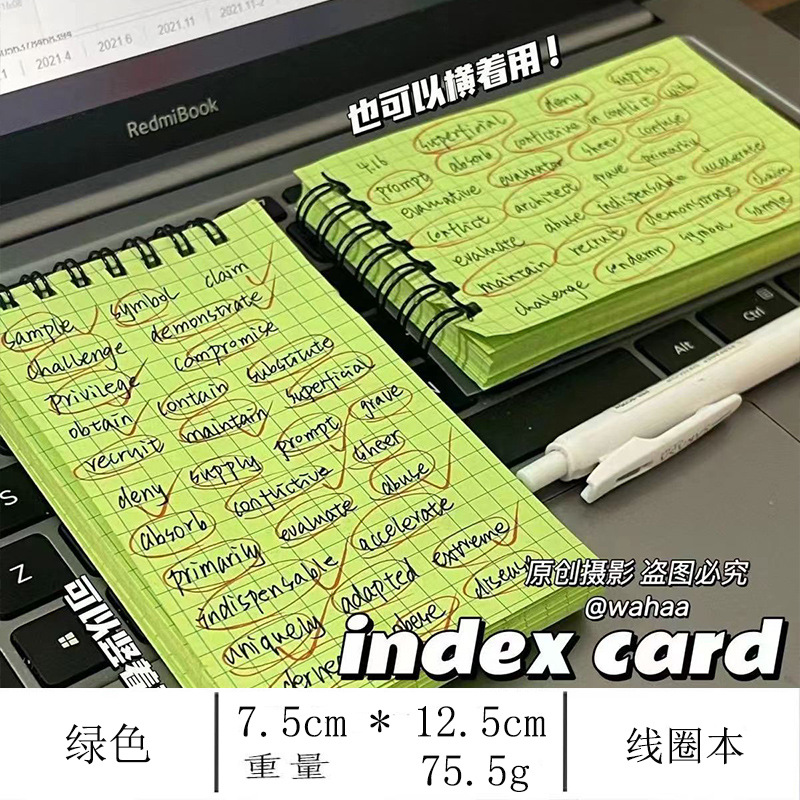 2021.4 2021.6 2021.11 2021.11-2
RedmiBook
也可以横着用！
4.16 superficial deny supply
prompt absorb conflictive in conflict with
evaluative evaluator cheer confuse
conflict architect grave primarily accelerate
evaluate abuse indispensable claim
maintain recruit demonstrate sample
challenge condemn symbol
Alt
Ctrl
sample symbol claim
challenge demonstrate
privilege compromise
obtain contain substitute
recruit maintain superficial
deny supply prompt grave
absorb conflictive cheer
primarily evaluate abuse
indispensable accelerate
uniquely adapted extreme
disease
S
Z
可以竖着
原创摄影 盗图必究
@wahaa
index card
绿色
7.5cm * 12.5cm
重量 75.5g
线圈本